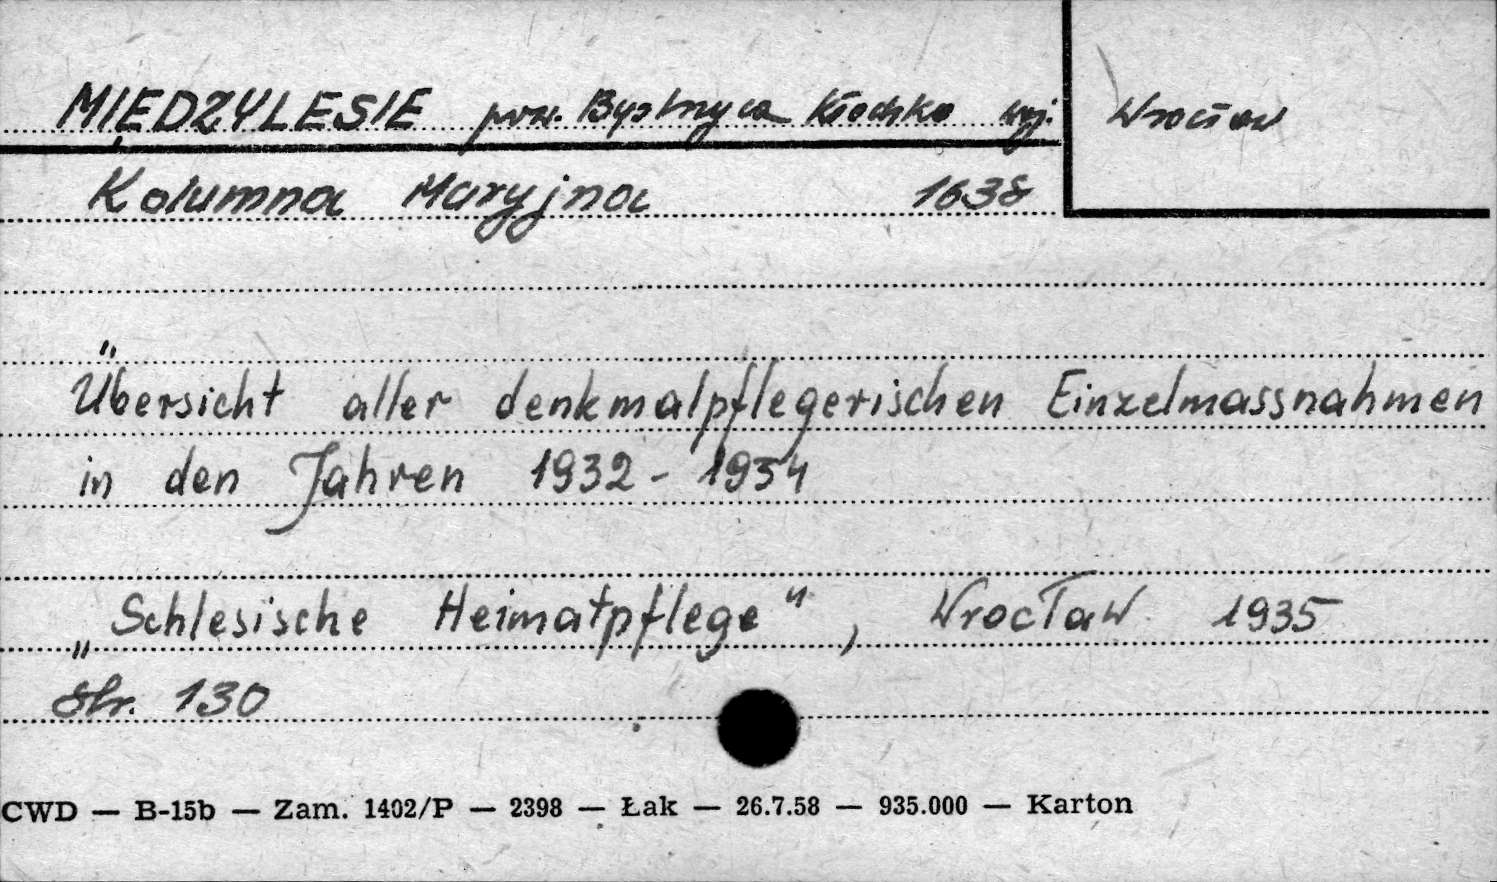 MIĘDZYLESIE pow. Bystrzyca Kłodzka woj. Wrocław
Kolumna Maryjna 1638
Übersicht aller denkmalpflegerischen Einzelmassnahmen
in den Jahren 1932 - 1934
„Schlesische Heimatpflege", Wrocław 1935
Str. 130
CWD — B-15b — Zam. 1402/P — 2398 — Łak — 26.7.58 — 935.000 — Karton